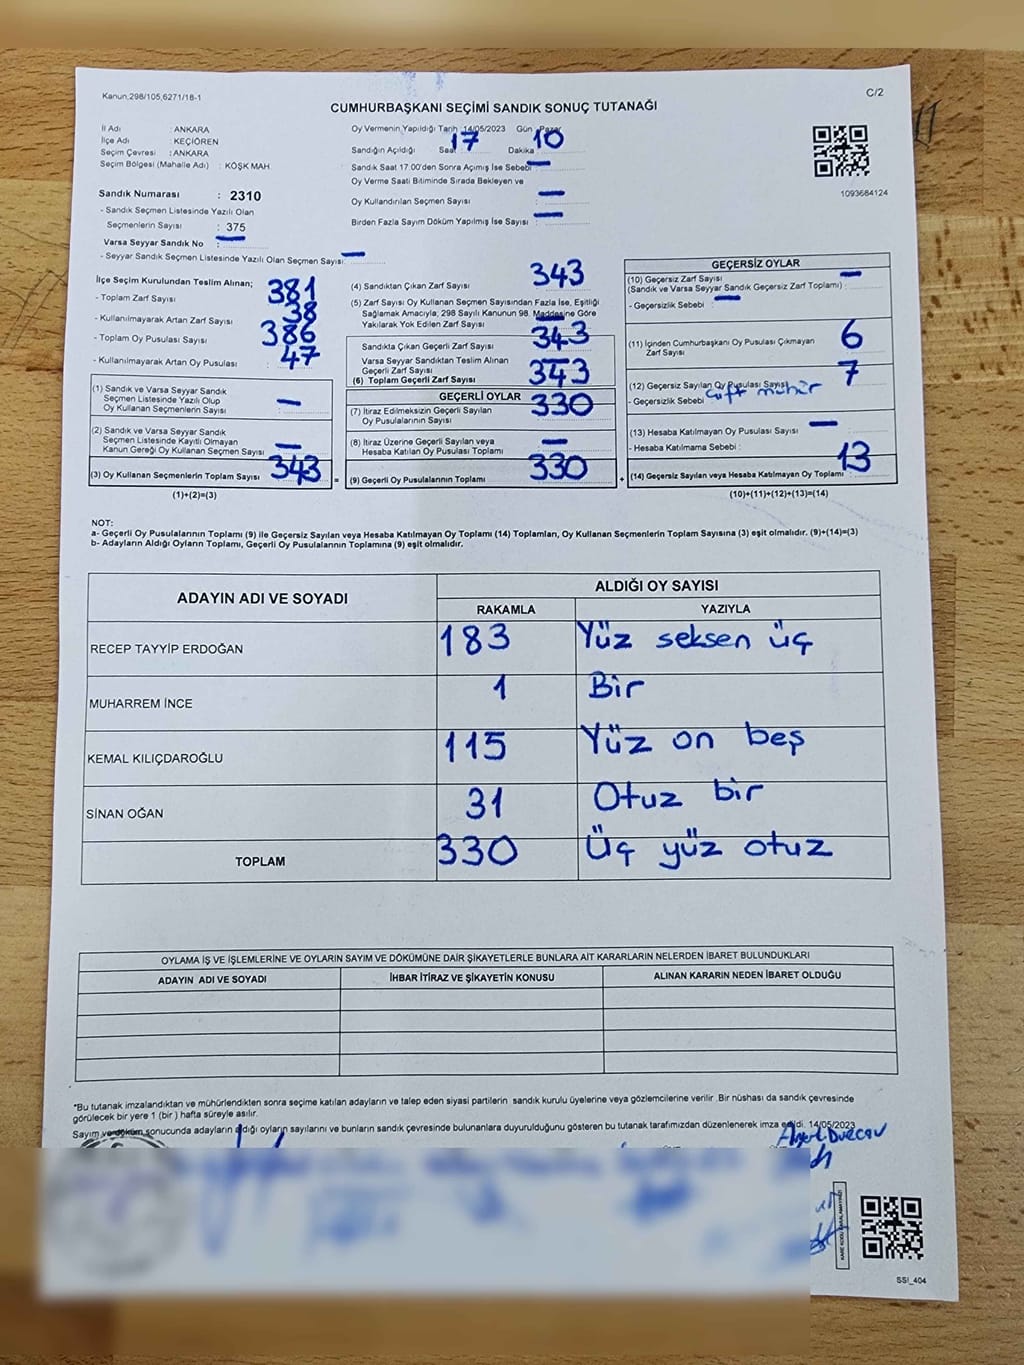 Kanun,298/105,6271/18-1
C/2
CUMHURBAŞKANI SEÇİMİ SANDIK SONUÇ TUTANAĞI
İl Adı : ANKARA
İlçe Adı : KEÇİÖREN
Seçim Çevresi : ANKARA
Seçim Bölgesi (Mahalle Adı) : KÖŞK MAH.
Sandık Numarası : 2310
- Sandık Seçmen Listesinde Yazılı Olan
Seçmenlerin Sayısı : 375
Varsa Seyyar Sandık No : —
- Seyyar Sandık Seçmen Listesinde Yazılı Olan Seçmen Sayısı: —
Oy Vermenin Yapıldığı Tarih :14/05/2023 Gün :Pazar
Sandığın Açıldığı Saat 17 Dakika 10
Sandık Saat 17.00'den Sonra Açımış İse Sebebi —
Oy Verme Saati Bitiminde Sırada Bekleyen ve
Oy Kullandırılan Seçmen Sayısı : —
Birden Fazla Sayım Döküm Yapılmış İse Sayısı : —
1093684124
İlçe Seçim Kurulundan Teslim Alınan;
- Toplam Zarf Sayısı 381
- Kullanılmayarak Artan Zarf Sayısı 38
- Toplam Oy Pusulası Sayısı 386
- Kullanılmayarak Artan Oy Pusulası : 47
(1) Sandık ve Varsa Seyyar Sandık
Seçmen Listesinde Yazılı Olup
Oy Kullanan Seçmenlerin Sayısı : —
(2) Sandık ve Varsa Seyyar Sandık
Seçmen Listesinde Kayıtlı Olmayan
Kanun Gereği Oy Kullanan Seçmen Sayısı : —
(3) Oy Kullanan Seçmenlerin Toplam Sayısı 343
(1)+(2)=(3)
=
(4) Sandıktan Çıkan Zarf Sayısı : 343
(5) Zarf Sayısı Oy Kullanan Seçmen Sayısından Fazla İse, Eşitliği
Sağlamak Amacıyla, 298 Sayılı Kanunun 98. Maddesine Göre
Yakılarak Yok Edilen Zarf Sayısı : —
Sandıkta Çıkan Geçerli Zarf Sayısı 343
Varsa Seyyar Sandıktan Teslim Alınan
Geçerli Zarf Sayısı : —
(6) Toplam Geçerli Zarf Sayısı 343
GEÇERLİ OYLAR
(7) İtiraz Edilmeksizin Geçerli Sayılan
Oy Pusulalarının Sayısı : 330
(8) İtiraz Üzerine Geçerli Sayılan veya
Hesaba Katılan Oy Pusulası Toplamı : —
(9) Geçerli Oy Pusulalarının Toplamı 330
+
GEÇERSİZ OYLAR
(10) Geçersiz Zarf Sayısı
(Sandık ve Varsa Seyyar Sandık Geçersiz Zarf Toplamı) : —
- Geçersizlik Sebebi : —
(11) İçinden Cumhurbaşkanı Oy Pusulası Çıkmayan
Zarf Sayısı 6
(12) Geçersiz Sayılan Oy Pusulası Sayısı 7
- Geçersizlik Sebebi çift mühür
(13) Hesaba Katılmayan Oy Pusulası Sayısı : —
- Hesaba Katılmama Sebebi :
(14) Geçersiz Sayılan veya Hesaba Katılmayan Oy Toplamı 13
(10)+(11)+(12)+(13)=(14)
NOT:
a- Geçerli Oy Pusulalarının Toplamı (9) ile Geçersiz Sayılan veya Hesaba Katılmayan Oy Toplamı (14) Toplamları, Oy Kullanan Seçmenlerin Toplam Sayısına (3) eşit olmalıdır. (9)+(14)=(3)
b- Adayların Aldığı Oyların Toplamı, Geçerli Oy Pusulalarının Toplamına (9) eşit olmalıdır.
ADAYIN ADI VE SOYADI
ALDIĞI OY SAYISI
RAKAMLA YAZIYLA
RECEP TAYYİP ERDOĞAN 183 Yüz seksen üç
MUHARREM İNCE 1 Bir
KEMAL KILIÇDAROĞLU 115 Yüz on beş
SİNAN OĞAN 31 Otuz bir
TOPLAM 330 Üç yüz otuz
OYLAMA İŞ VE İŞLEMLERİNE VE OYLARIN SAYIM VE DÖKÜMÜNE DAİR ŞİKAYETLERLE BUNLARA AİT KARARLARIN NELERDEN İBARET BULUNDUKLARI
ADAYIN ADI VE SOYADI İHBAR İTİRAZ VE ŞİKAYETİN KONUSU ALINAN KARARIN NEDEN İBARET OLDUĞU
*Bu tutanak imzalandıktan ve mühürlendikten sonra seçime katılan adayların ve talep eden siyasi partilerin sandık kurulu üyelerine veya gözlemcilerine verilir .Bir nüshası da sandık çevresinde
görülecek bir yere 1 (bir ) hafta süreyle asılır.
Sayım ve döküm sonucunda adayların aldığı oyların sayılarını ve bunların sandık çevresinde bulunanlara duyurulduğunu gösteren bu tutanak tarafımızdan düzenlenerek imza edildi. 14/05/2023
SSI_404